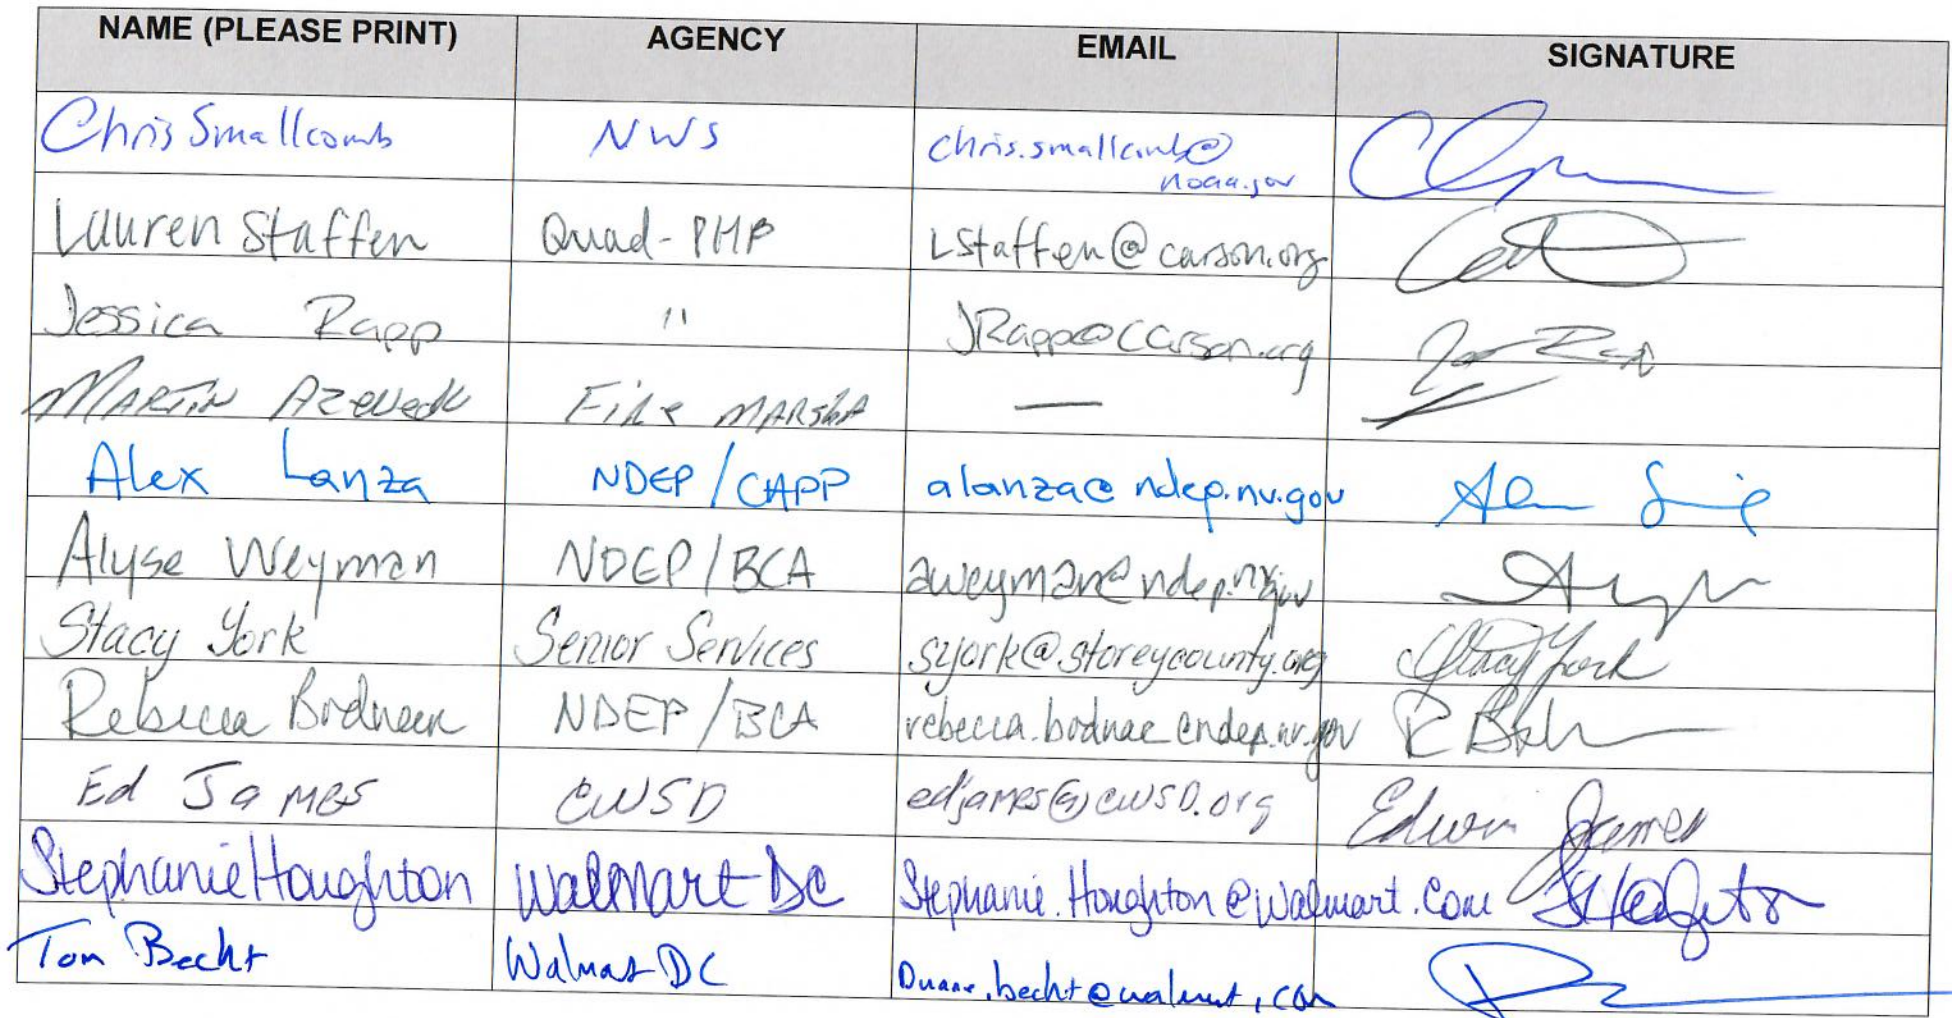 NAME (PLEASE PRINT) AGENCY EMAIL SIGNATURE
Chris Smallcomb NWS chris.smallcomb@
noaa.gov
Lauren Staffen Quad-PHP LStaffen@carson.org
Jessica Rapp " JRapp@carson.org
MARTIN AZEVEDO FIRE MARSHAL —
Alex Lanza NDEP/CAPP alanza@ndep.nv.gov
Alyse Weyman NDEP/BCA aweyman@ndep.nv.gov
Stacy York Senior Services syork@storeycounty.org Stacy York
Rebecca Bodnar NDEP/BCA rebecca.bodnar@ndep.nv.gov
Ed JAMES CWSD edjames@cwsd.org Edwin James
Stephanie Houghton Walmart DC Stephanie.Houghton@Walmart.Com
Tom Becht Walmart DC Duane.becht@walmart.com